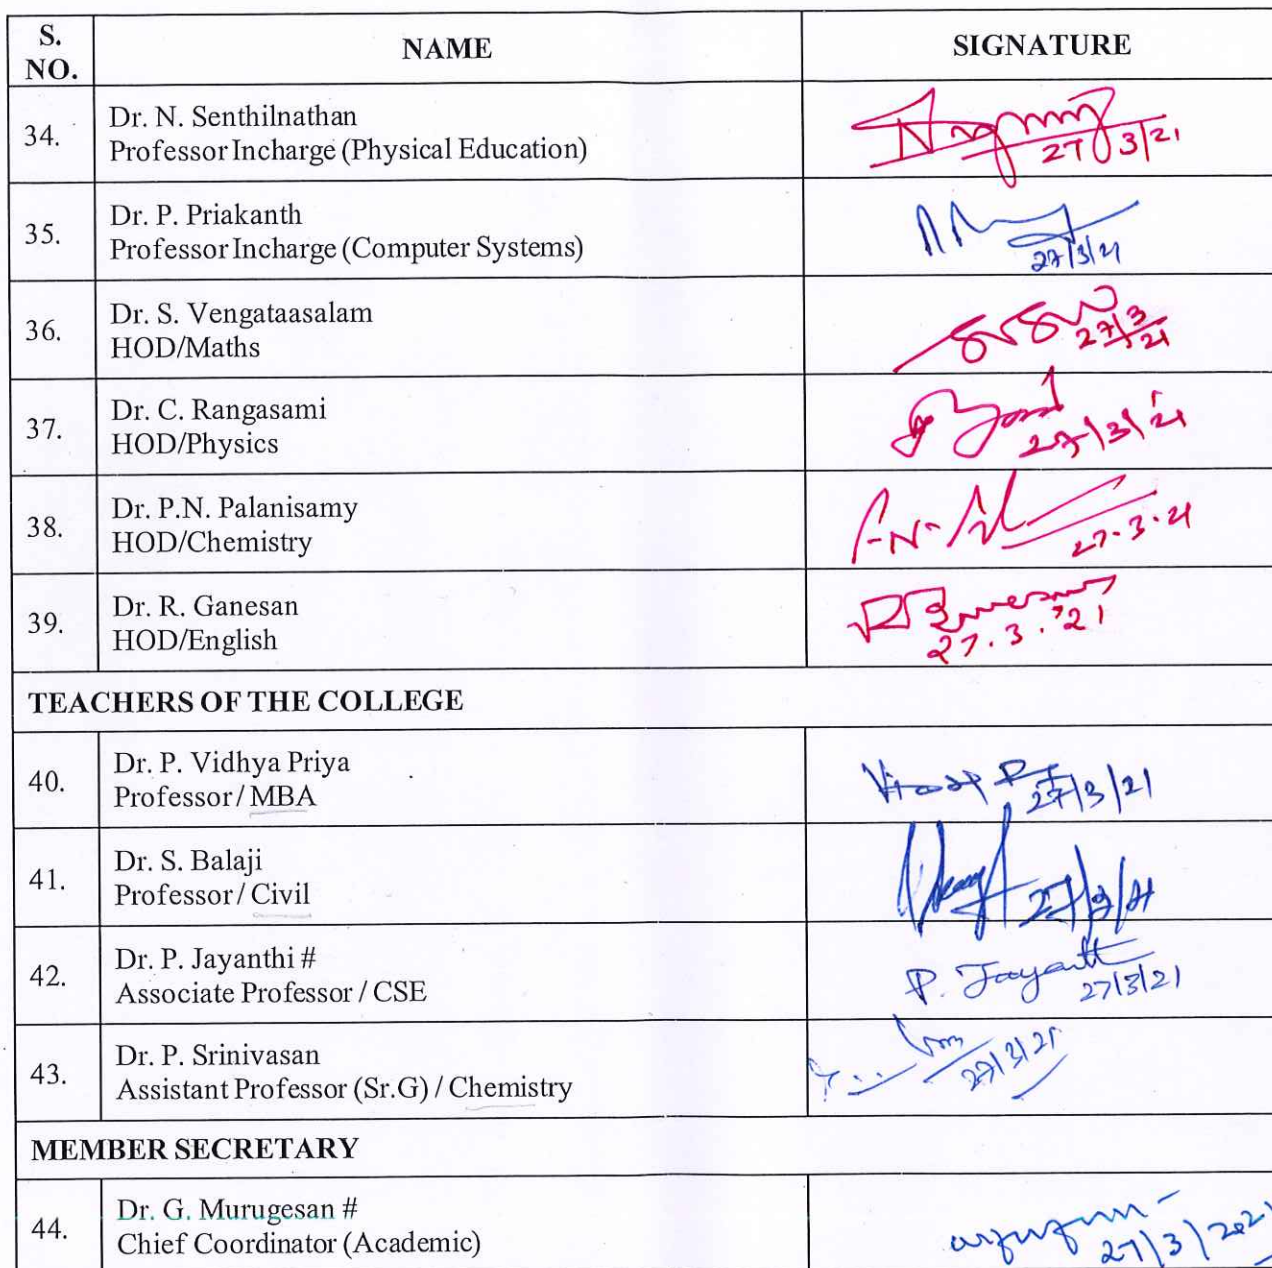 S. NO.
NAME
SIGNATURE
34.
Dr. N. Senthilnathan
Professor Incharge (Physical Education)
27/3/21
35.
Dr. P. Priakanth
Professor Incharge (Computer Systems)
27/3/21
36.
Dr. S. Vengataasalam
HOD/Maths
27/3/21
37.
Dr. C. Rangasami
HOD/Physics
27/3/21
38.
Dr. P.N. Palanisamy
HOD/Chemistry
27.3.21
39.
Dr. R. Ganesan
HOD/English
27.3.'21
TEACHERS OF THE COLLEGE
40.
Dr. P. Vidhya Priya
Professor / MBA
27/3/21
41.
Dr. S. Balaji
Professor / Civil
27/3/21
42.
Dr. P. Jayanthi #
Associate Professor / CSE
P. Jayanthi
27/3/21
43.
Dr. P. Srinivasan
Assistant Professor (Sr.G) / Chemistry
27/3/21
MEMBER SECRETARY
44.
Dr. G. Murugesan #
Chief Coordinator (Academic)
27/3/2021